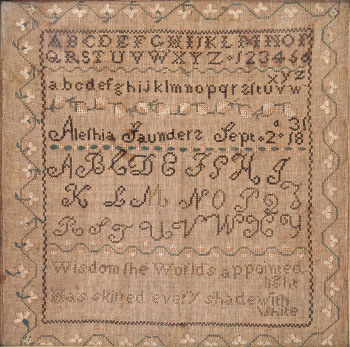 A B C D E F G H I J K L M N O P
Q R S T U V W X Y Z · 1 2 3 4 5 6
a b c d e f g h i j k l m n o p q r s t u v w x y z
Saunders Sept. 2 d 1831
A B C D E F G H I J
K L M N O P Q
R S T U V W X Y
Wisdom the Worlds appointed light
Has skilled every shade with White